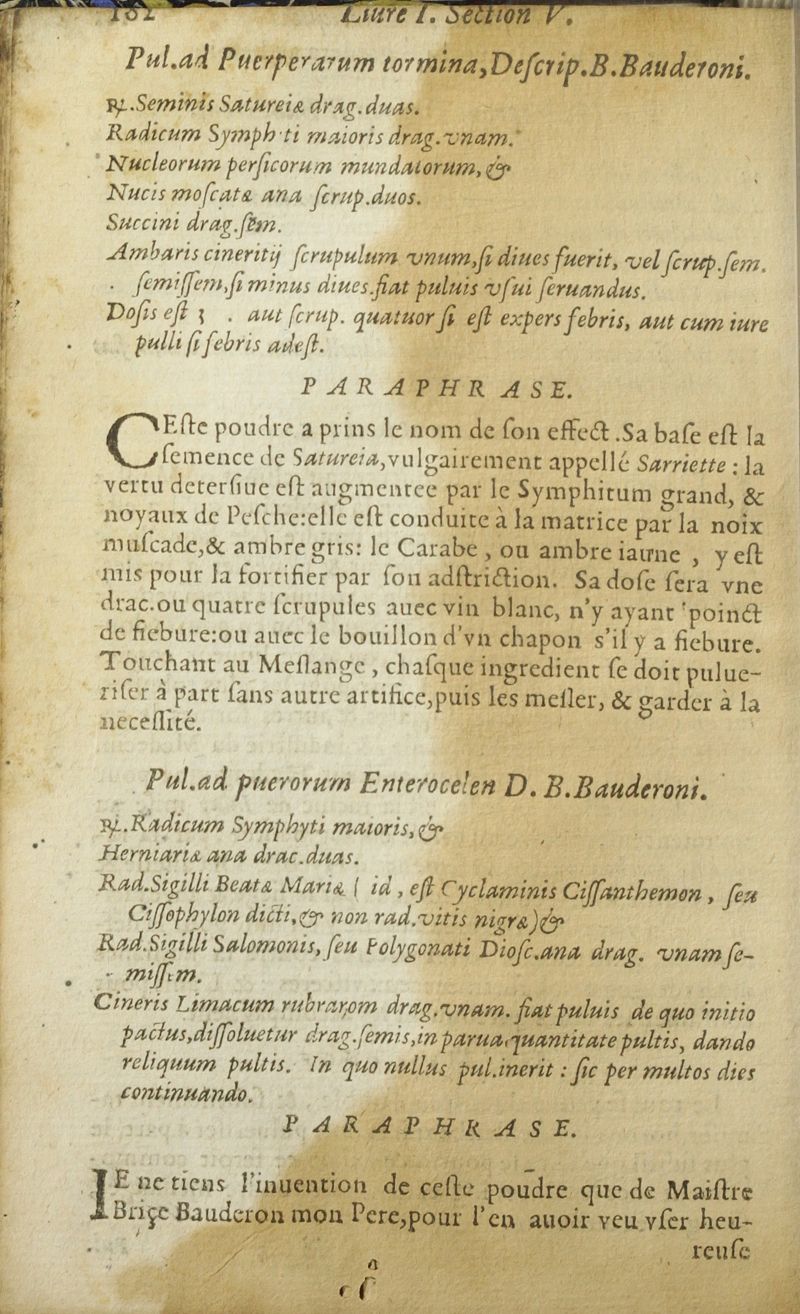 182 Liure I. Section V.
Pul.ad Puerperarum tormina,Descrip.B.Bauderoni.
℞.Seminis Satureiæ drag.duas.
Radicum Symphyti maioris drag.vnam.
Nucleorum persicorum mundatorum,&
Nucis moscatæ ana scrup.duos.
Succini drag.sem.
Ambaris cineritij scrupulum vnum,si diues fuerit, vel scrup.sem.
semissem,si minus diues.fiat puluis vsui seruandus.
Dosis est ʒ . aut scrup. quatuor si est expers febris, aut cum iure
pulli si febris adest.
PARAPHRASE.
CEste poudre a prins le nom de son effect .Sa base est la
semence de Satureia,vulgairement appellé Sarriette : la
vertu detersiue est augmentee par le Symphitum grand, &
noyaux de Pesche:elle est conduite à la matrice par la noix
muscade,& ambre gris: le Carabe , ou ambre iaune , y est
mis pour la fortifier par son adstriction. Sa dose sera vne
drac.ou quatre scrupules auec vin blanc, n'y ayant poinct
de fiebure:ou auec le bouillon d'vn chapon s'il y a fiebure.
Touchant au Meslange , chasque ingredient se doit pulue-
riser à part sans autre artifice,puis les mesler, & garder à la
necessité.
Pul.ad puerorum Enterocelen D. B.Bauderoni.
℞.Radicum Symphyti maioris,&
Herniariæ ana drac.duas.
Rad.Sigilli Beatæ Mariæ ( id , est Cyclaminis Cissanthemon , seu
Cissophylon dicti,& non rad.vitis nigræ)&
Rad.Sigilli Salomonis, seu Polygonati Diosc.ana drag. vnam se-
missem.
Cineris Limacum rubrarom drag.vnam. fiat puluis de quo initio
pactus,dissoluetur drag.semis,in parua quantitate pultis, dando
reliquum pultis. In quo nullus pul.inerit : sic per multos dies
continuando.
PARAPHRASE.
IE ne tiens l'inuention de ceste poudre que de Maistre
Briçe Bauderon mon Pere,pour l'en auoir veu vser heu-
reuse